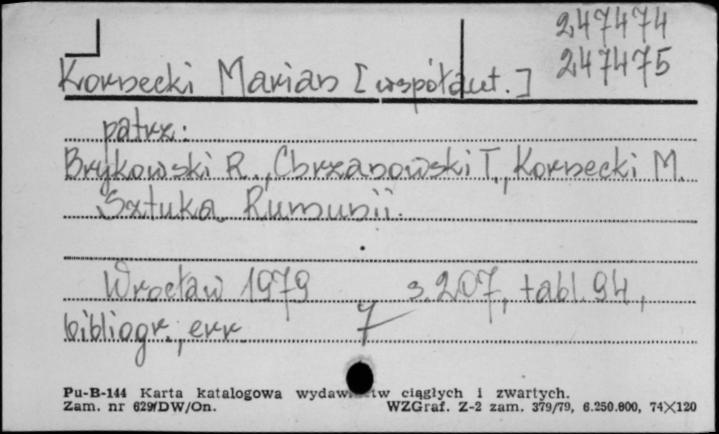 247474
Kornecki Marian [współaut.] 247475
patrz:
Brykowski R., Chrzanowski T., Kornecki M.
Sztuka Rumunii.
Wrocław 1979 s. 207, tabl. 94,
bibliogr., err. 7
Pu-B-144 Karta katalogowa wydawnictw ciągłych i zwartych.
Zam. nr 629/DW/On. WZGraf. Z-2 zam. 379/79, 6.250.000, 74×120